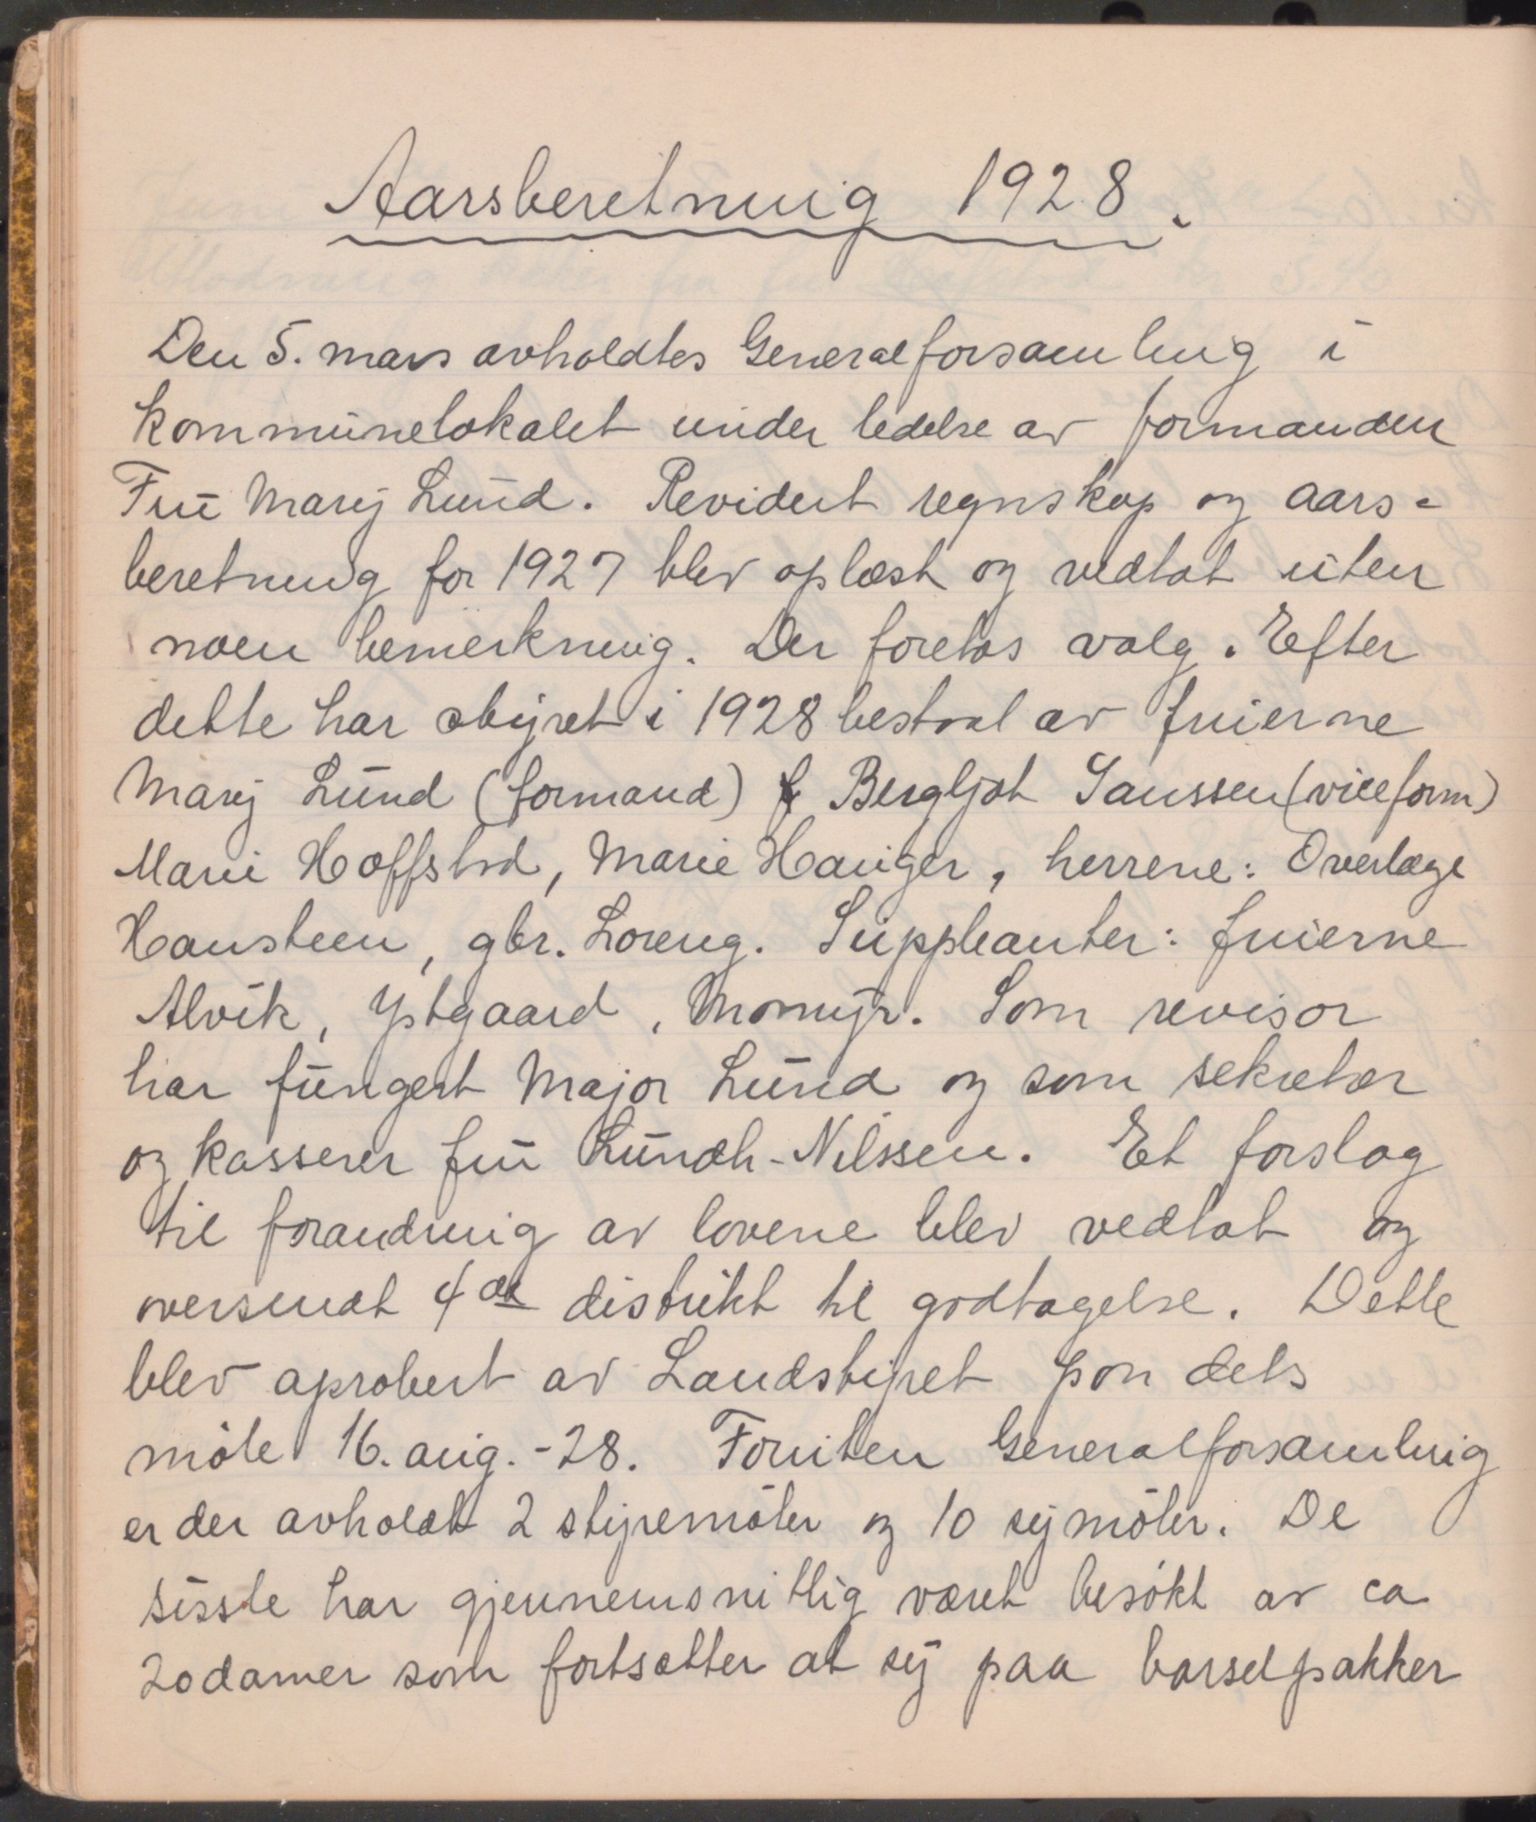 Aarsberetning 1928.
Den 5. mars avholdtes Generalforsamling i
kommunelokalet under ledelse av formanden
Fru Mary Lund. Revidert regnskap og aars-
beretning for 1927 blev oplæst og vedtat uten
noen bemerkning. Der foretos valg. Efter
dette har styret i 1928 bestaal av fruerne
Mary Lund (formand) Bergljot Janssen (viceform)
Marie Hoffstad, Marie Hauger, herrene: Overlæge
Hansteen, gbr. Loreng. Suppleanter: fruerne
Alvik, Ystgaard, Momyr. Som revisor
har fungert Major Lund og som sekretær
og kasserer fru Lundh-Nilssen. Et forslag
til forandring av lovene blev vedtat og
oversendt 4de distrikt til godtagelse. Dette
blev aprobert av Landstyret paa dets
møte 16. aug. -28. Foruten Generalforsamling
er der avholdt 2 styremøter og 10 symøter. De
sisste har gjennemsnitlig været besøkt av ca
20 damer som fortsætter at sy paa barselpakker